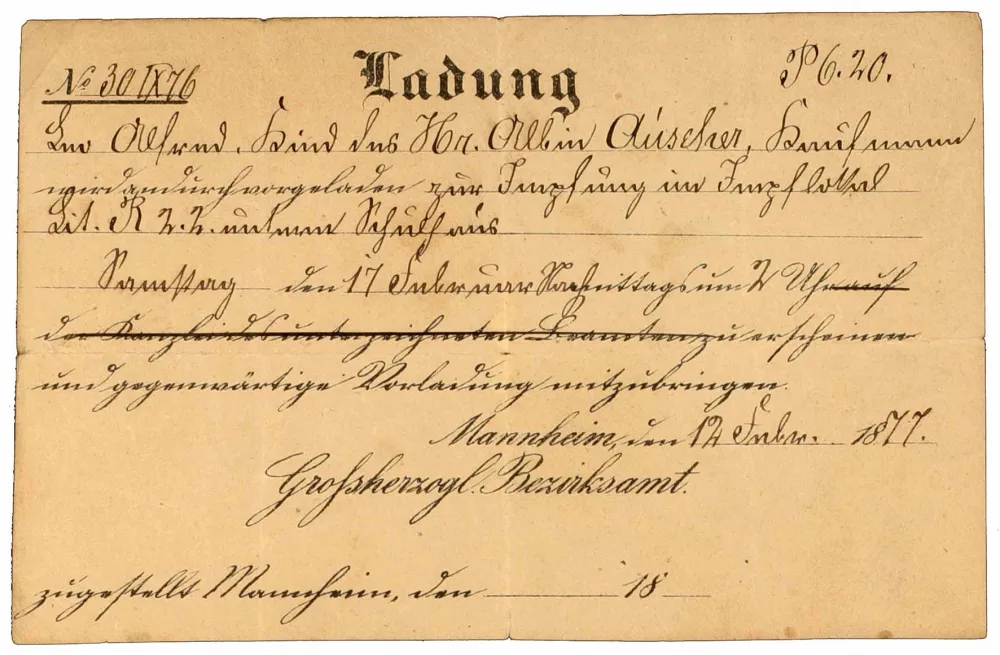 No 30 IX 76
Ladung
P 6. 20.
Leo Alfred, Kind des Hr. Albin Auscher, Kaufmann
wird andurch vorgeladen zur Impfung im Impflokal
Lit. R 2. 2. untern Schulhaus
Samstag den 17 Februar Nachmittags um 2 Uhr auf
der Kanzlei des unterzeichneten Beamten zu erscheinen
und gegenwärtige Vorladung mitzubringen.
Mannheim, den 12 Febr. 1877.
Großherzogl. Bezirksamt.
zugestellt Mannheim, den 18